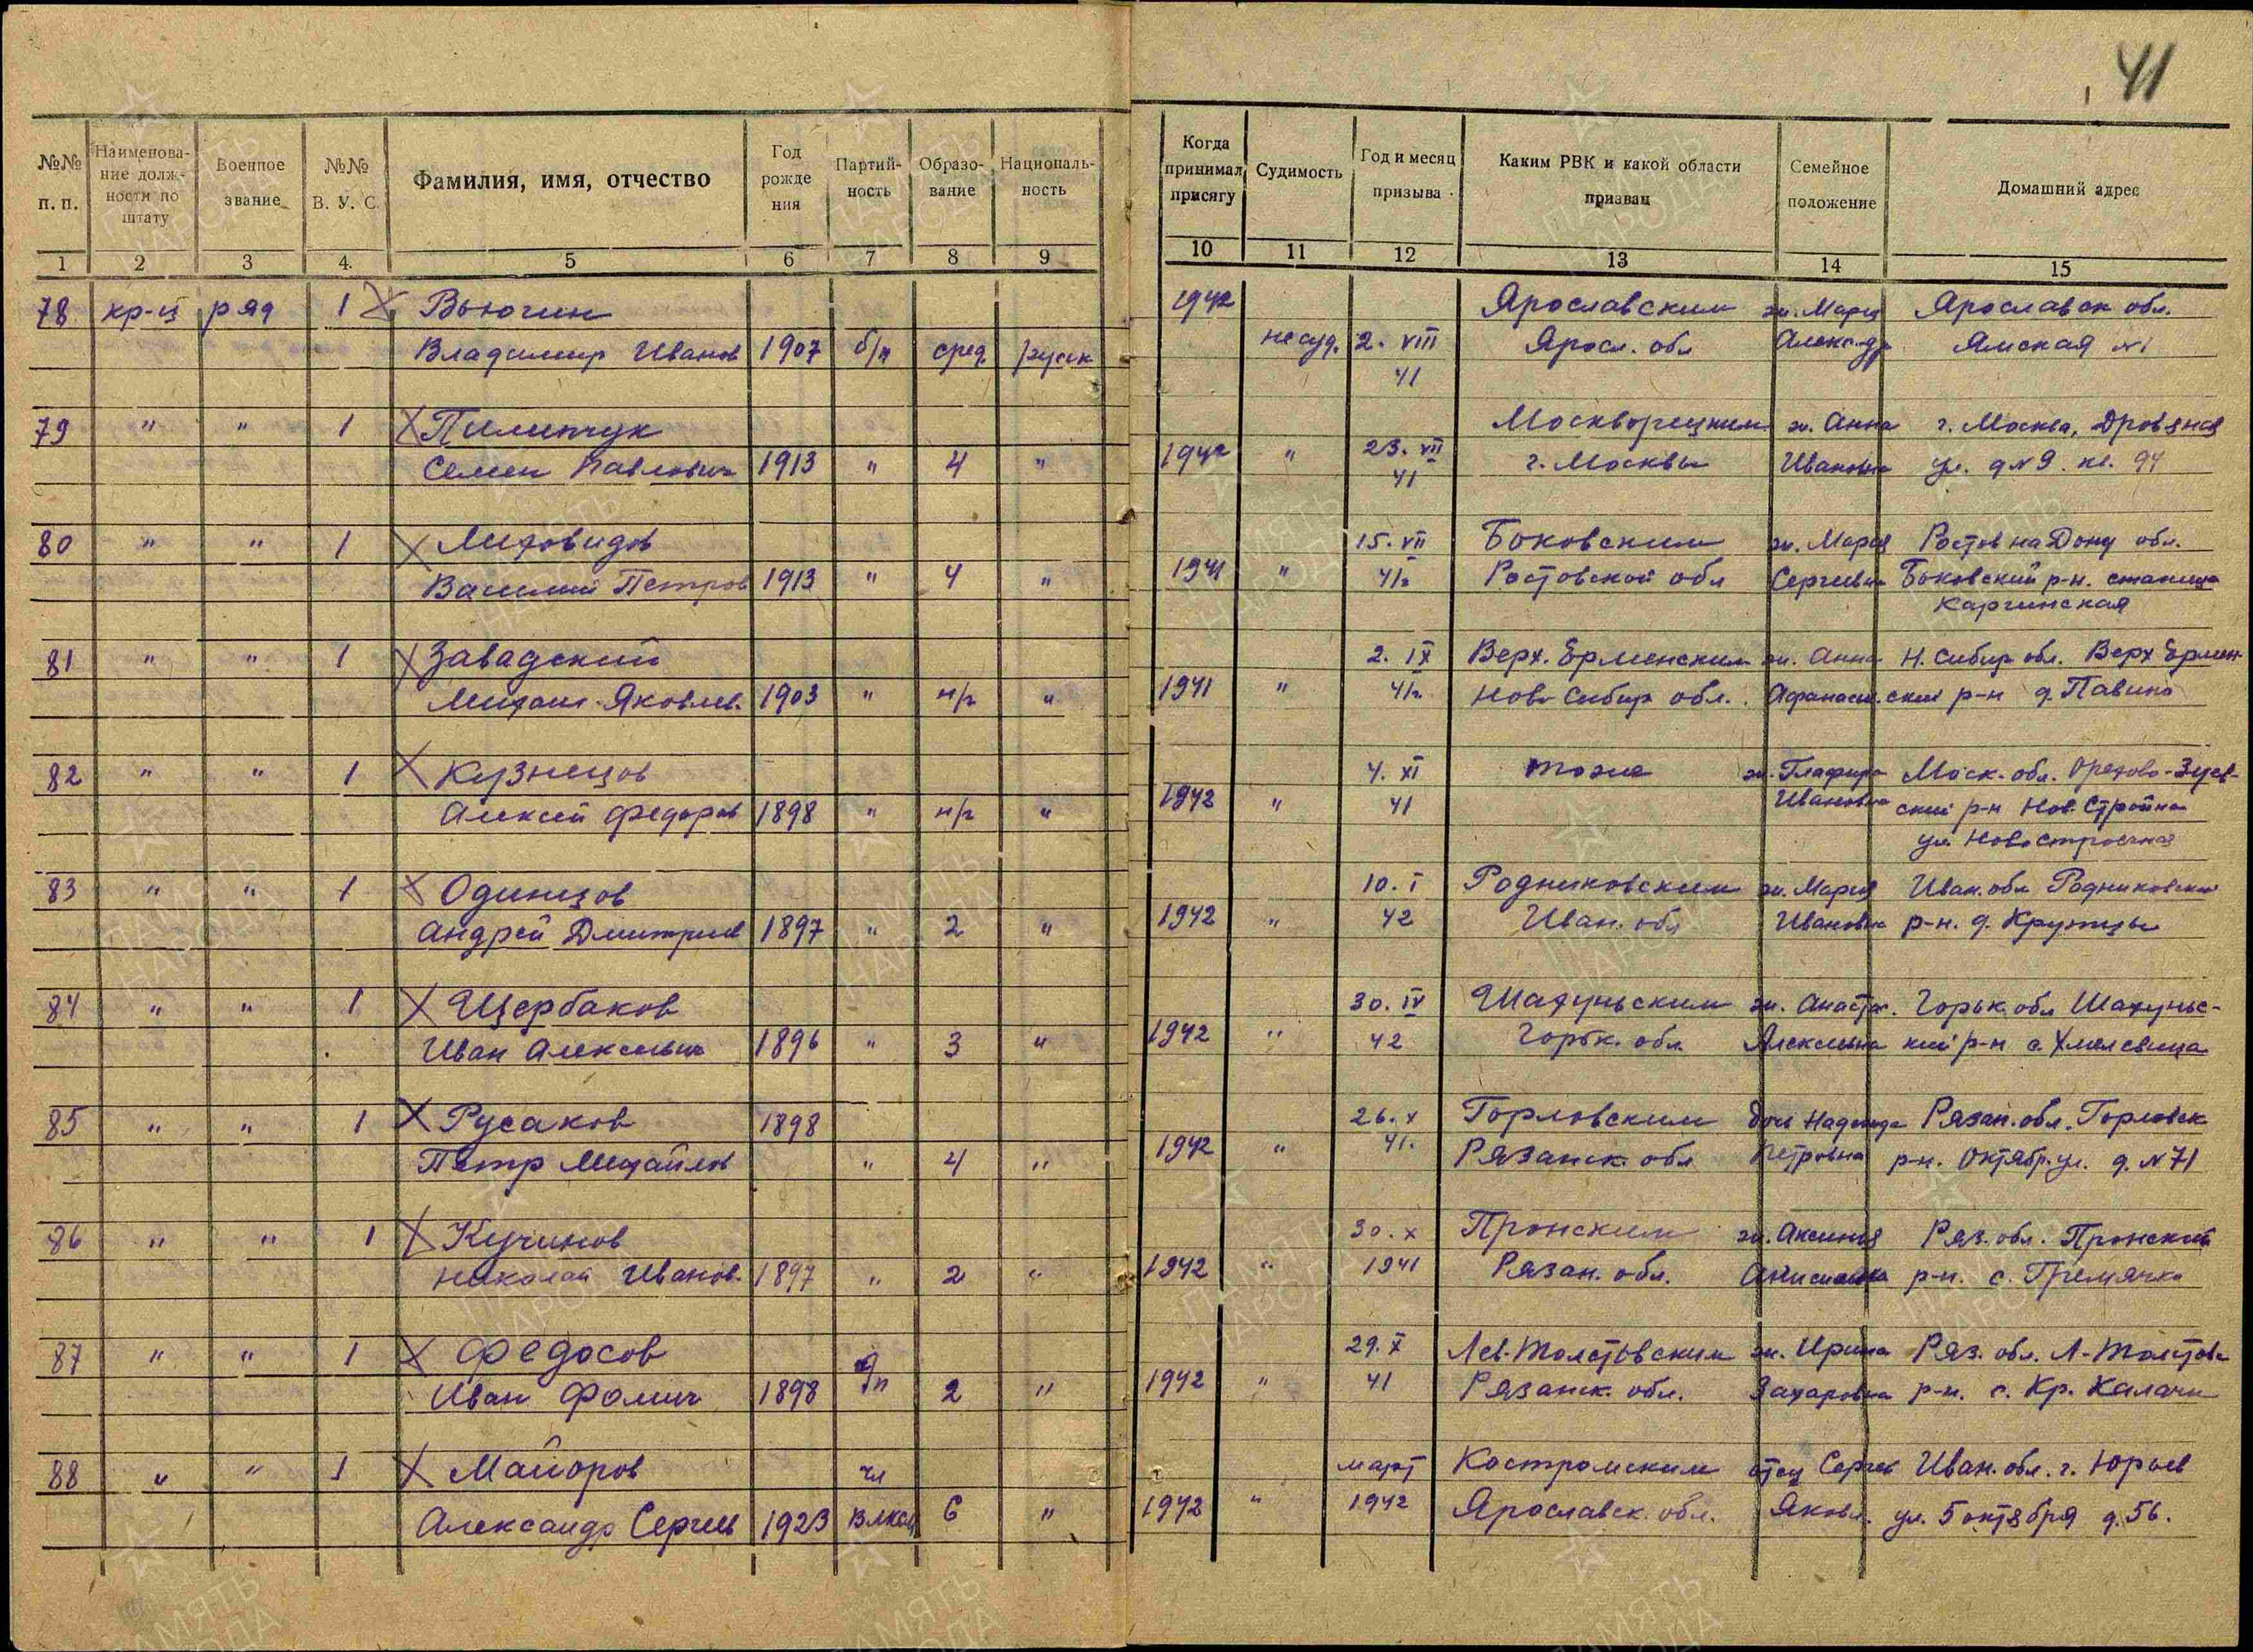 41
№№ п. п. Наименова-ние долж-ности по штату Военное звание №№ В. У. С. Фамилия, имя, отчество Год рожде ния Партий-ность Образо-вание Националь-ность Когда принимал присягу Судимость Год и месяц призыва Каким РВК и какой области призван Семейное положение Домашний адрес
1 2 3 4 5 6 7 8 9 10 11 12 13 14 15
78 кр-ц ряд 1 Вьюгин 1942 Ярославским ж. Мария Ярославск обл.
Владимир Иванов 1907 б/п сред русск не суд. 2. VIII Яросл. обл Алекс-др Ямская №1
41
79 " " 1 Пилипчук Москворецким ж. Анна г. Москва, Дровяная
Семен Павлович 1913 " 4 " 1942 " 23. VII г. Москвы Ивановна ул. д №9. кв. 94
41
80 " " 1 Миловидов 15. VII Боковским ж. Мария Ростов на Дону обл.
Василий Петров 1913 " 4 " 1941 " 41г Ростовской обл Сергеевна Боковский р-н. станица
Каргинская
81 " " 1 Завадский 2. IX Верх. Ерменским ж. Анна Н. Сибир обл. Верх Ермен-
Михаил Яковлев. 1903 " н/г " 1941 " 41г Ново Сибир обл. Афанасьев. ский р-н д. Павино
82 " " 1 Кузнецов 4. XI тоже ж. Глафира Моск. обл. Орехово-Зуев-
Алексей Федоров 1898 " н/г " 1942 " 41 Ивановна ский р-н Нов. Стройка
ул. Новостроечная
83 " " 1 Одинцов 10. I Родниковским ж. Мария Иван. обл Родниковский
Андрей Дмитриев 1897 " 2 " 1942 " 42 Иван. обл Ивановна р-н. д. Крутцы
84 " " 1 Щербаков 30. IV Шахуньским ж. Анастас. Горьк. обл Шахуньс-
Иван Алексеевич 1896 " 3 " 1942 " 42 Горьк. обл. Алексеевна кий р-н с. Хмелевица
85 " " 1 Русаков 1898 26. X Горловским дочь Надежда Рязан. обл. Горловск
Петр Михайлов " 4 " 1942 " 41. Рязанск. обл Петровна р-н. Октябр. ул. д. №71
86 " " 1 Кучинов 30. X Пронским ж. Аксинья Ряз. обл. Пронский
Николай Иванов. 1897 " 2 " 1942 " 1941 Рязан. обл. Анисимовна р-н. с. Гремячка
87 " " 1 Федосов 29. X Лев-Толстовским ж. Ирина Ряз. обл. Л-Толстов
Иван Фомич 1898 б/п 2 " 1942 " 41 Рязанск. обл. Захаровна р-н. с. Кр. Калачи
88 " " 1 Майоров чл март Костромским отец Сергей Иван. обл. г. Юрьев
Александр Сергеев 1923 ВЛКСМ 6 " 1942 " 1942 Ярославск. обл. Яковл. ул. 5 октября д. 56.
ПАМЯТЬ НАРОДА